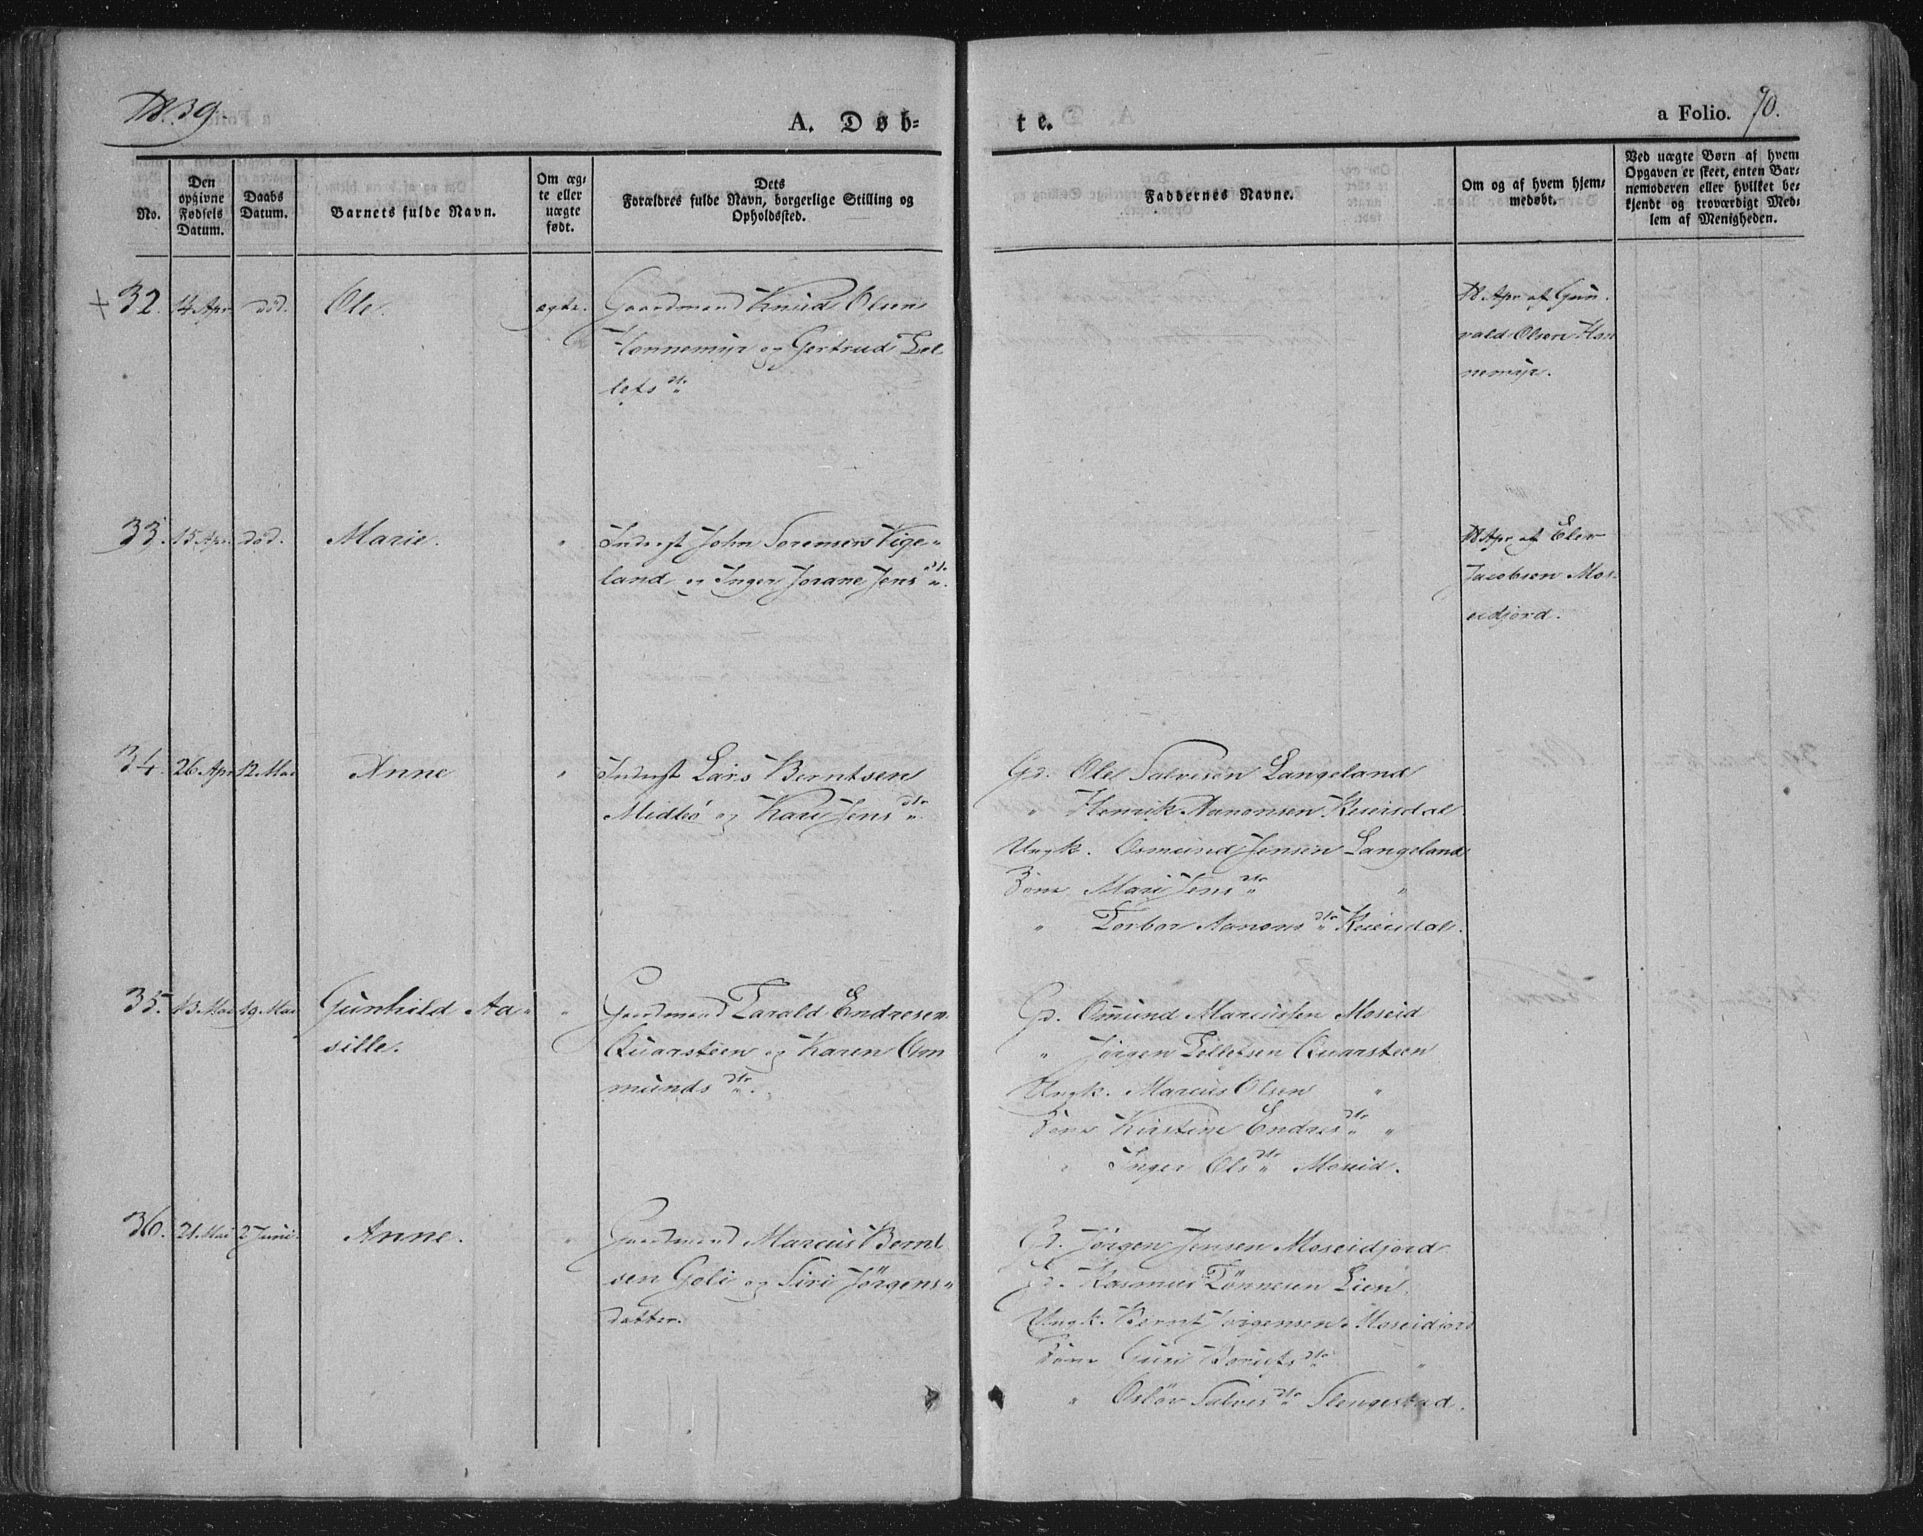 1839
A. Døb-
te.
a Folio. 70.
No.
Den opgivne Fødsels Datum.
Daabs Datum.
Barnets fulde Navn.
Om æg-
te eller
uægte
født.
Dets
Forældres fulde Navn, borgerlige Stilling og
Opholdssted.
Faddernes Navne.
Om og af hvem hjem-
medøbt.
Ved uægte Børn af hvem
Opgaven er skeet, enten Bar-
nemoderen eller hvilket be-
kjendt og troværdigt Med-
lem af Menigheden.
+ 32. 14 Apr død. Ole. ægte. Gaardmand Knud Olsen
Honnemyr og Gertrud Tel
lefs dtr
18 Apr af Gun
vald Olsen Hon
nemyr.
33. 15 Apr. død. Marie. " Indergst John Sørensen Vige-
land og Inger Jorane Jens dtr.
18 Apr af Eler
Jacobsen Mos-
eidjord.
34. 26 Apr 12 Mai Anne " Inderst Lars Berntsen
Midtbø og Kari Jens dtr
Gd. Ole Salvesen Langeland
" Henrik Aanonsen Reiersdal.
Ungk. Osmund Jensen Langeland
Pige Mari Jens dtr "
" Torbor Aanons dtr Reiersdal.
35. 13 Mai 19 Mai Gunhild Aa-
sille. " Gaardmand Tarald Endresen
Quarsteen og Karen Om
munds dtr.
Gd. Osmund Marcussen Moseid
" Jørgen Tellefsen Quarsteen
Ungk. Marcus Olsen "
Pige Kirstine Endres dtr "
" Inger Ols dtr Moseid.
36. 21 Mai 2 Juni. Anne. " Gaardmand Marcus Bernt
sen Goli og Siri Jörgens-
datter.
Gd. Jørgen Jensen Moseidjord
Gd. Rasmus Tönnesen Lien.
Ungk. Bernt Jørgensen Moseidjord
Pige Guri dtr "
" Oslöv Salves dtr Slengestad.